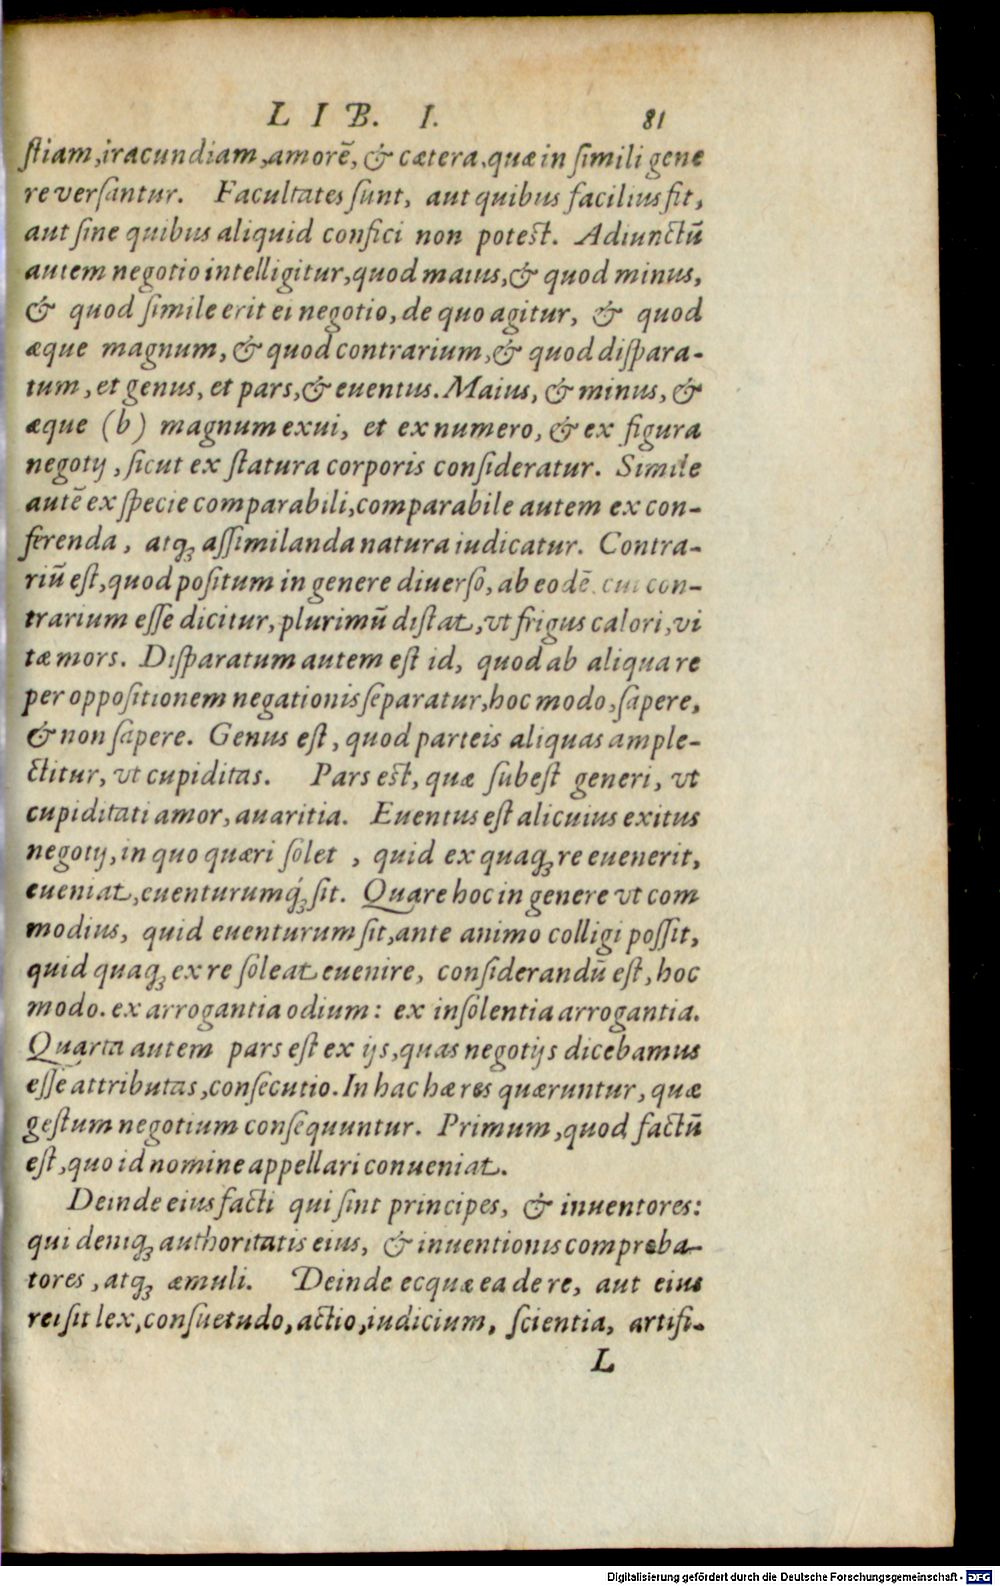 LIB. I. 81
ſtiam, iracundiam, amorē, & cætera, quæ in ſimili gene
re verſantur. Facultates ſunt, aut quibus facilius fit,
aut ſine quibus aliquid confici non poteſt. Adiunctū
autem negotio intelligitur, quod maius, & quod minus,
& quod ſimile erit ei negotio, de quo agitur, & quod
æque magnum, & quod contrarium, & quod diſpara-
tum, et genus, et pars, & euentus. Maius, & minus, &
æque (b) magnum ex ui, et ex numero, & ex figura
negotij, ſicut ex ſtatura corporis conſideratur. Simile
autē ex ſpecie comparabili, comparabile autem ex con-
ferenda, atqꝫ aſſimilanda natura iudicatur. Contra-
riū eſt, quod poſitum in genere diuerſo, ab eodē cui con-
trarium eſſe dicitur, plurimū diſtat, vt frigus calori, vi
tæ mors. Diſparatum autem eſt id, quod ab aliqua re
per oppoſitionem negationis ſeparatur, hoc modo, ſapere,
& non ſapere. Genus eſt, quod parteis aliquas ample-
ctitur, vt cupiditas. Pars eſt, quæ ſubeſt generi, vt
cupiditati amor, auaritia. Euentus eſt alicuius exitus
negotij, in quo quæri ſolet , quid ex quaqꝫ re euenerit,
eueniat, euenturumq́ꝫ ſit. Quare hoc in genere vt com
modius, quid euenturum ſit, ante animo colligi poſſit,
quid quaqꝫ ex re ſoleat euenire, conſiderandū eſt, hoc
modo. ex arrogantia odium: ex inſolentia arrogantia.
Quarta autem pars eſt ex ijs, quas negotijs dicebamus
eſſe attributas, conſecutio. In hac hæ res quæruntur, quæ
geſtum negotium conſequuntur. Primum, quod factū
eſt, quo id nomine appellari conueniat.
Deinde eius facti qui ſint principes, & inuentores:
qui deniqꝫ authoritatis eius, & inuentionis comproba-
tores, atqꝫ æmuli. Deinde ecquæ ea de re, aut eius
rei ſit lex, conſuetudo, actio, iudicium, ſcientia, artifi-
L
Digitalisierung gefördert durch die Deutsche Forschungsgemeinschaft - DFG